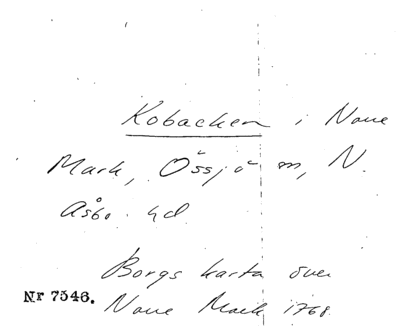 Kobacken i None
Mark, Össjö sn, N.
Åsbo hd.
Borgs karta över
Nr 7546.
None Mark 1768.